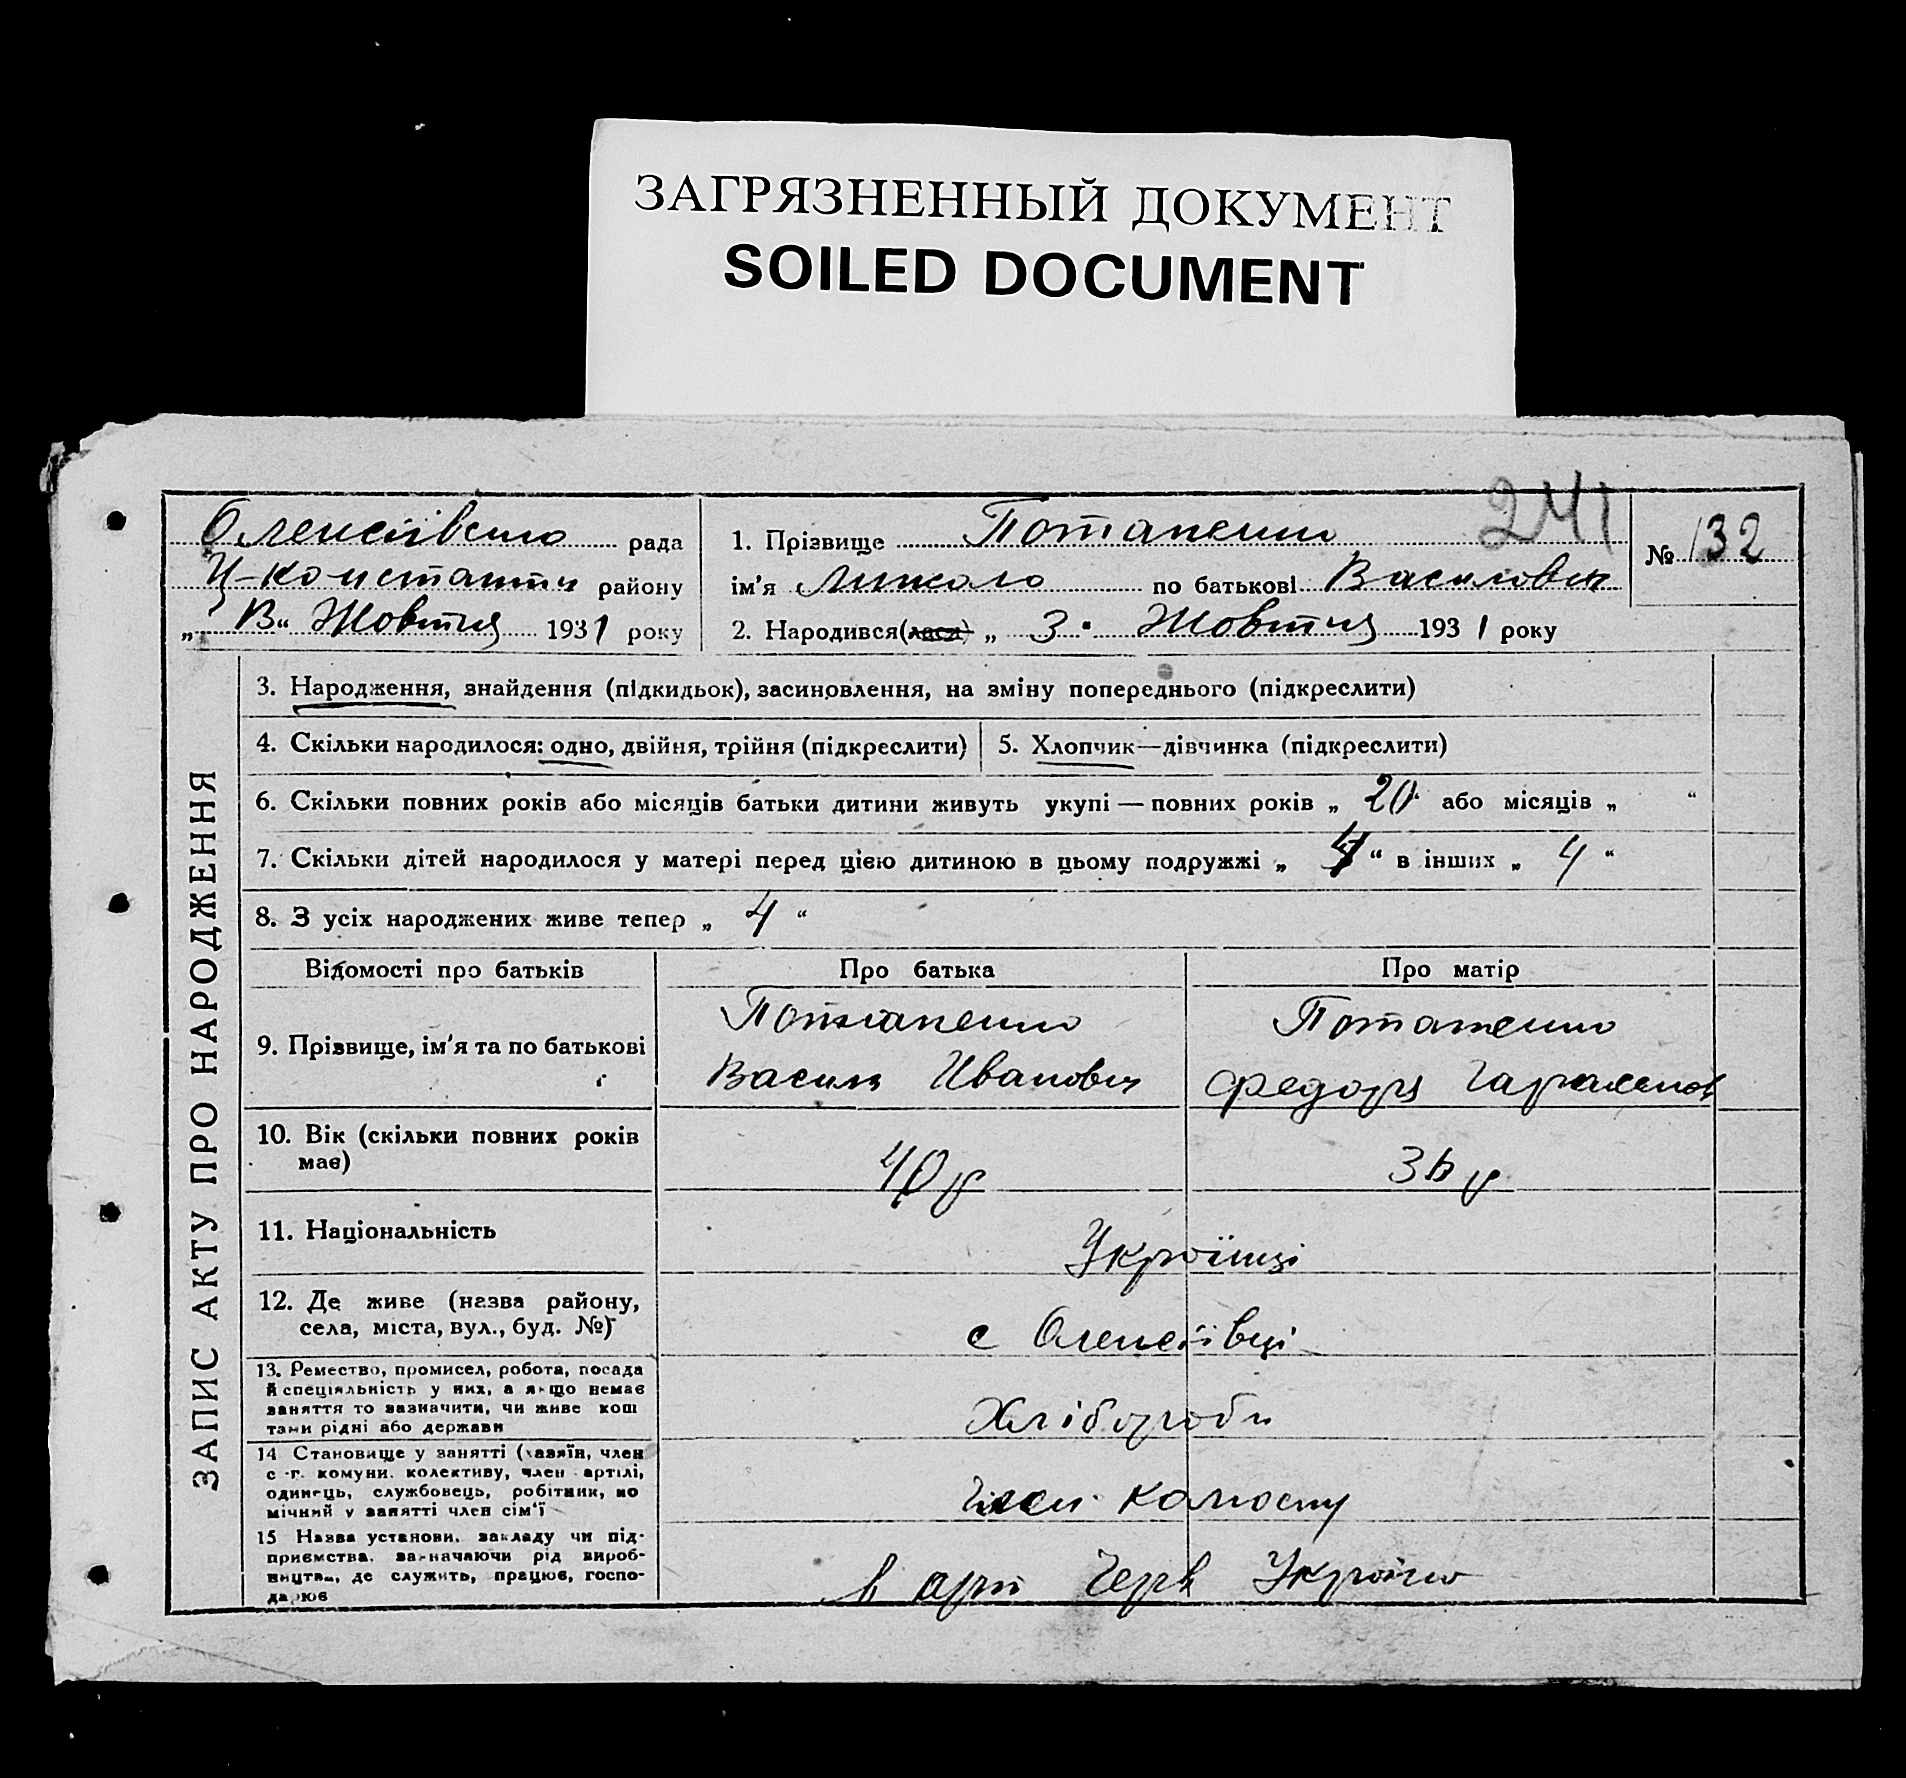 ЗАГРЯЗНЕННЫЙ ДОКУМЕНТ
SOILED DOCUMENT
241
Олексіївсько рада
Н-Констант район у
„ В “ Жовтня 1931 року
1. Прізвище Потапенко
ім'я Микола по батькові Василович
2. Народився(лася) „ 3 “ Жовтня 1931 року
№ 132
ЗАПИС АКТУ ПРО НАРОДЖЕННЯ
3. Народження, знайдення (підкидьок), засиновлення, на зміну попереднього (підкреслити)
4. Скільки народилося: одно, двійня, трійня (підкреслити)
5. Хлопчик—дівчинка (підкреслити)
6. Скільки повних років або місяців батьки дитини живуть укупі — повних років „ 20 “ або місяців „ “
7. Скільки дітей народилося у матері перед цією дитиною в цьому подружжі „ “ в інших „ 4 “
8. З усіх народжених живе тепер „ 4 “
Відомості про батьків
Про батька
Про матір
9. Прізвище, ім'я та по батькові
Потапенко
Василь Иванович
Потапенко
Федора
10. Вік (скільки повних років
має)
40 р
36 р
11. Національність
Українці
12. Де живе (назва району,
села, міста, вул., буд. №)
с Олексіївці
13. Ремество, промисел, робота, посада
й спеціяльність у них, а якщо немає
заняття то зазначити, чи живе кош
тами рідні або держави
Хлібороби
14 Становище у занятті (хазяїн, член
с -г. комуни. колективу, член артілі,
одинець, службовець, робітник, по
мічний у занятті член сім'ї
член колгоспу
15 Назва установи. закладу чи під-
приємства. зазначаючи рід вироб-
ництва, де служить, працює, госпо-
дарює
в арт Черв Україна